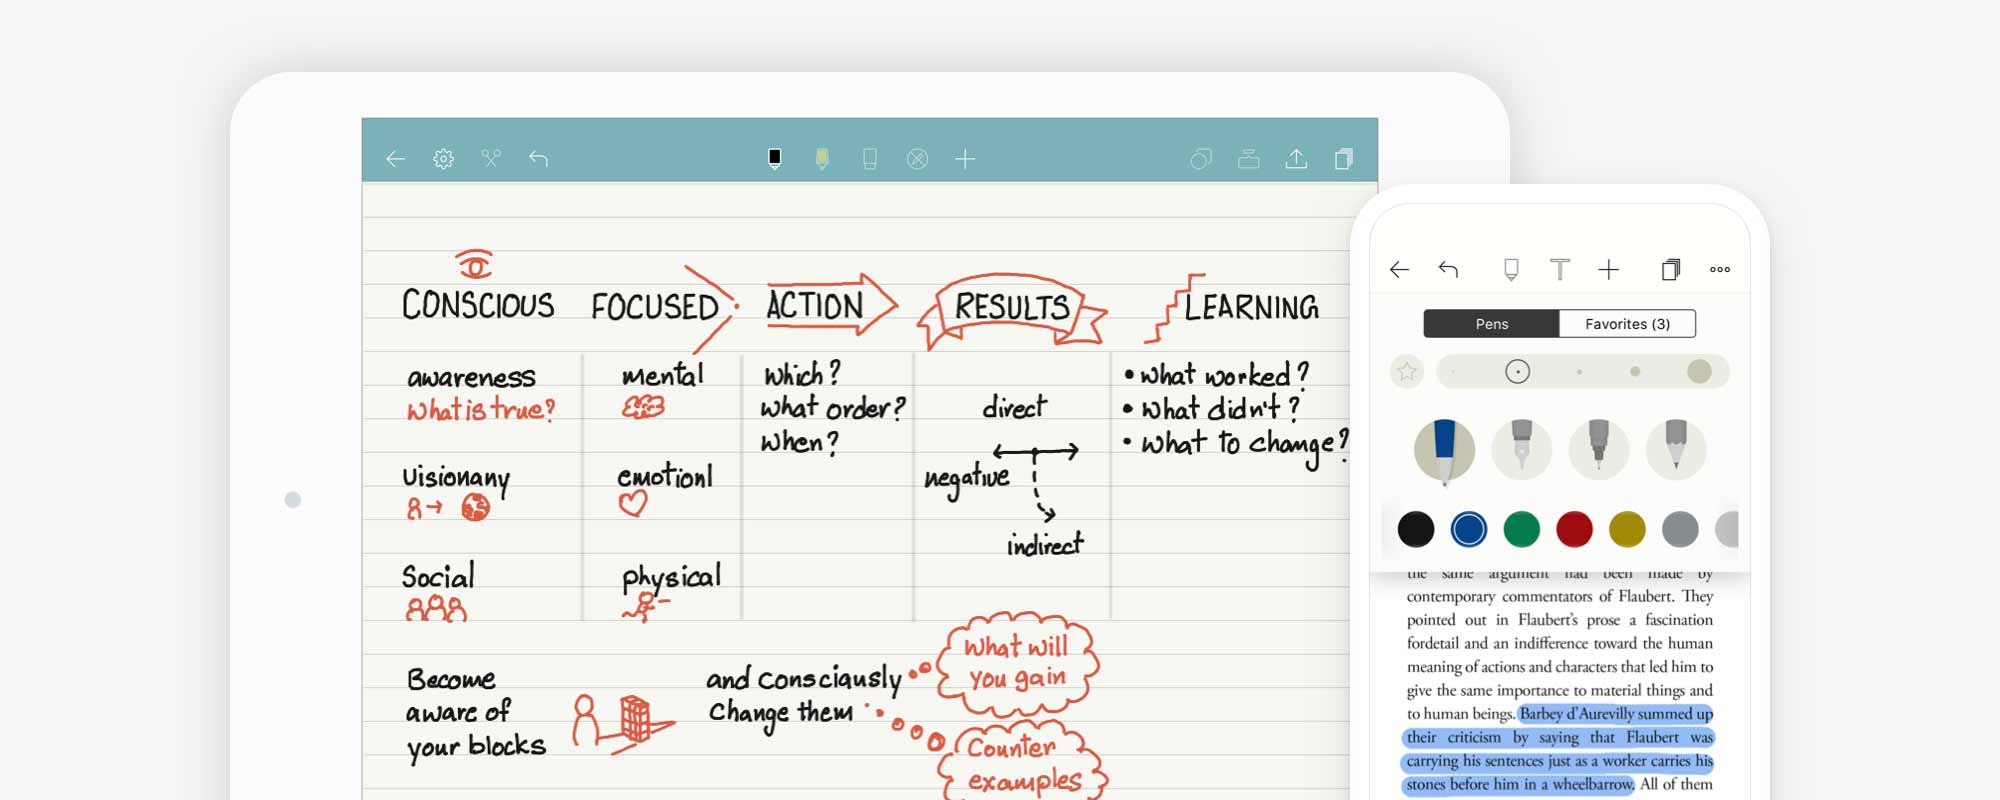 CONSCIOUS FOCUSED ACTION RESULTS LEARNING
awareness
what is true?
Uisionany
Social
mental
emotionl
physical
Which?
what order?
When?
direct
negative
indirect
• what worked?
• what didn't?
• what to change?
Become
aware of
your blocks
and consciausly
Change them
What will
you gain
Counter
examples
Pens
Favorites (3)
the same argument had been made by
contemporary commentators of Flaubert. They
pointed out in Flaubert's prose a fascination
fordetail and an indifference toward the human
meaning of actions and characters that led him to
give the same importance to material things and
to human beings. Barbey d'Aurevilly summed up
their criticism by saying that Flaubert was
carrying his sentences just as a worker carries his
stones before him in a wheelbarrow. All of them